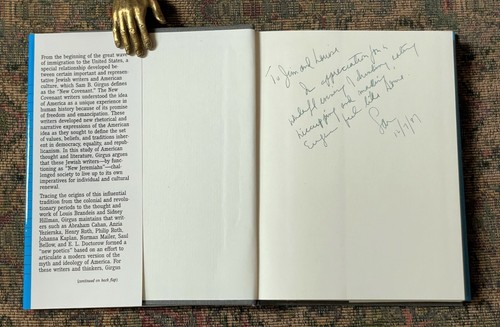 From the beginning of the great wave
of immigration to the United States, a
special relationship developed be-
tween certain important and represen-
tative Jewish writers and American
culture, which Sam B. Girgus defines
as the “New Covenant.” The New
Covenant writers understood the idea
of America as a unique experience in
human history because of its promise
of freedom and emancipation. These
writers developed new rhetorical and
narrative expressions of the American
idea as they sought to define the set
of values, beliefs, and traditions inher-
ent in democracy, equality, and repub-
licanism. In this study of American
thought and literature, Girgus argues
that these Jewish writers—by func-
tioning as “New Jeremiahs”—chal-
lenged society to live up to its own
imperatives for individual and cultural
renewal.
Tracing the origins of this influential
tradition from the colonial and revo-
lutionary periods to the thought and
work of Louis Brandeis and Sidney
Hillman, Girgus maintains that writ-
ers such as Abraham Cahan, Anzia
Yezierska, Henry Roth, Philip Roth,
Johanna Kaplan, Norman Mailer, Saul
Bellow, and E. L. Doctorow formed a
“new poetics” based on an effort to
articulate a modern version of the
myth and ideology of America. For
these writers and thinkers, Girgus
(continued on back flap)
To Jim and
In appreciation for a
evening of drinking, eating
and making
feel like
Sam